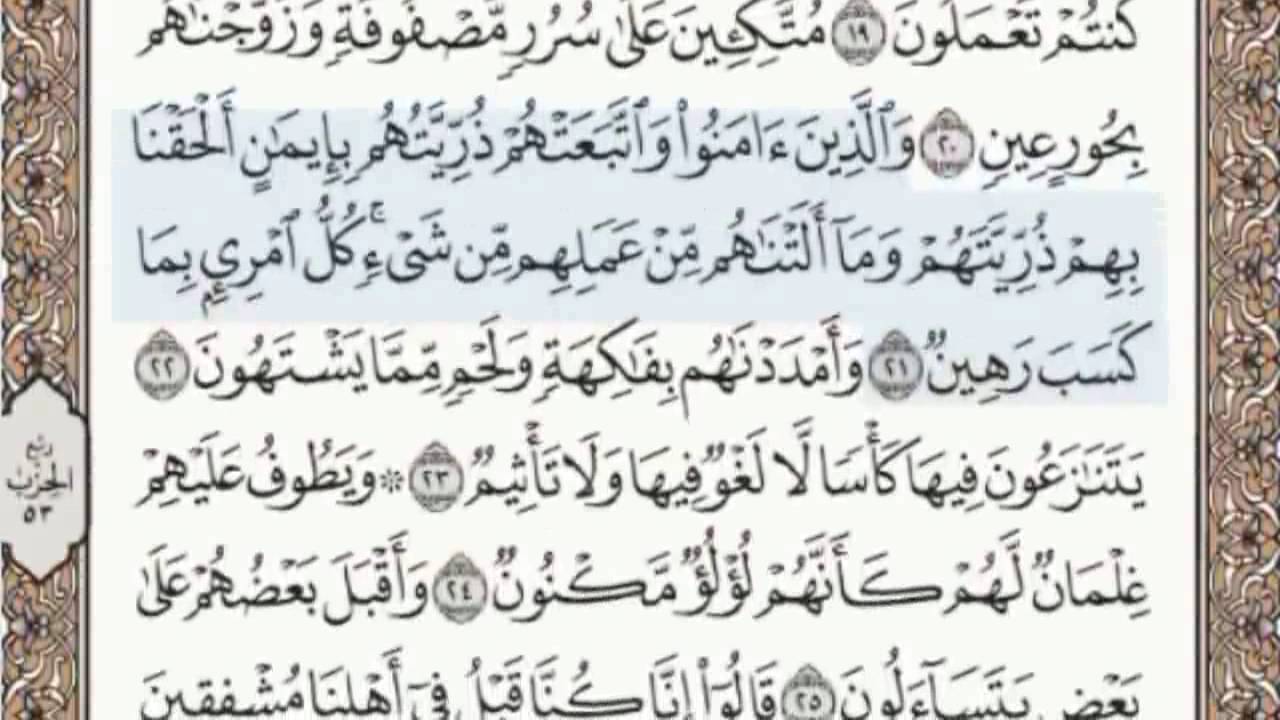 كُنتُمْ تَعْمَلُونَ ۝١٩ مُتَّكِـِٔينَ عَلَىٰ سُرُرٍ مَّصْفُوفَةٍ وَزَوَّجْنَـٰهُم
بِحُورٍ عِينٍ ۝٢٠ وَٱلَّذِينَ ءَامَنُوا۟ وَٱتَّبَعَتْهُمْ ذُرِّيَّتُهُم بِإِيمَـٰنٍ أَلْحَقْنَا
بِهِمْ ذُرِّيَّتَهُمْ وَمَآ أَلَتْنَـٰهُم مِّنْ عَمَلِهِم مِّن شَىْءٍ ۚ كُلُّ ٱمْرِئٍۭ بِمَا
كَسَبَ رَهِينٌ ۝٢١ وَأَمْدَدْنَـٰهُم بِفَـٰكِهَةٍ وَلَحْمٍ مِّمَّا يَشْتَهُونَ ۝٢٢
يَتَنَـٰزَعُونَ فِيهَا كَأْسًا لَّا لَغْوٌ فِيهَا وَلَا تَأْثِيمٌ ۝٢٣ ۞ وَيَطُوفُ عَلَيْهِمْ
غِلْمَانٌ لَّهُمْ كَأَنَّهُمْ لُؤْلُؤٌ مَّكْنُونٌ ۝٢٤ وَأَقْبَلَ بَعْضُهُمْ عَلَىٰ
بَعْضٍ يَتَسَآءَلُونَ ۝٢٥ قَالُوٓا۟ إِنَّا كُنَّا قَبْلُ فِىٓ أَهْلِنَا مُشْفِقِينَ
ربع
الحزب
٥٣